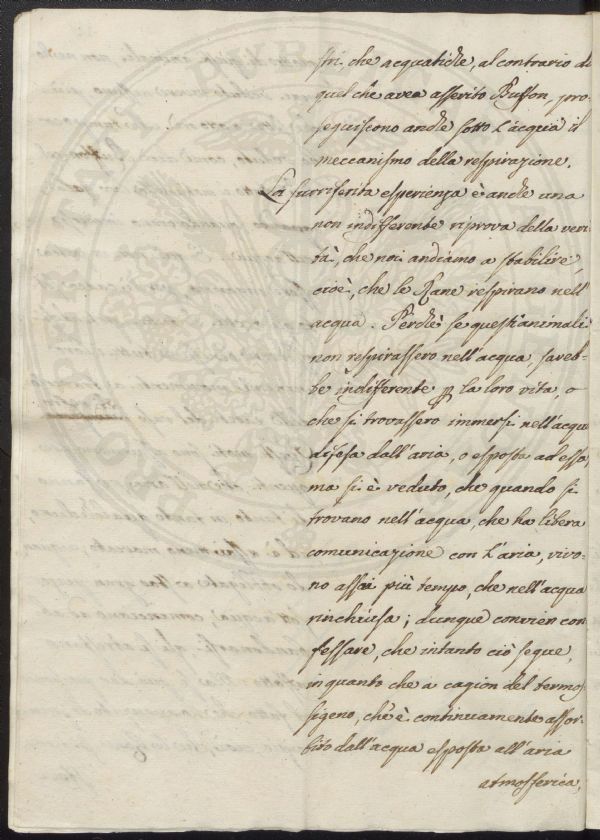 stri, che acquatiche, al contrario di
quel che avea asserito Buffon, pro-
seguiscono anche sotto l'acqua il
meccanismo della respirazione.
La surriferita esperienza è anche una
non indifferente riprova della veri
tà, che noi andiamo a stabilire,
cioè, che le Rane respirano nell'
acqua. Perchè se questi animali
non respirassero nell'acqua, sareb-
be indifferente p la loro vita, o
che si trovassero immersi nell'acqua
difesa dall'aria, o esposta ad essa,
ma si è veduto, che quando si
trovano nell'acqua, che ha libera
comunicazione con l'aria, vivo-
no assai più tempo, che nell'acqua
rinchiusa; dunque convien con
fessare, che intanto ciò segue,
in quanto che a cagion del termos
sigeno, ch'è continuamente assor-
bito dall'acqua esposta all'aria
atmosferica,